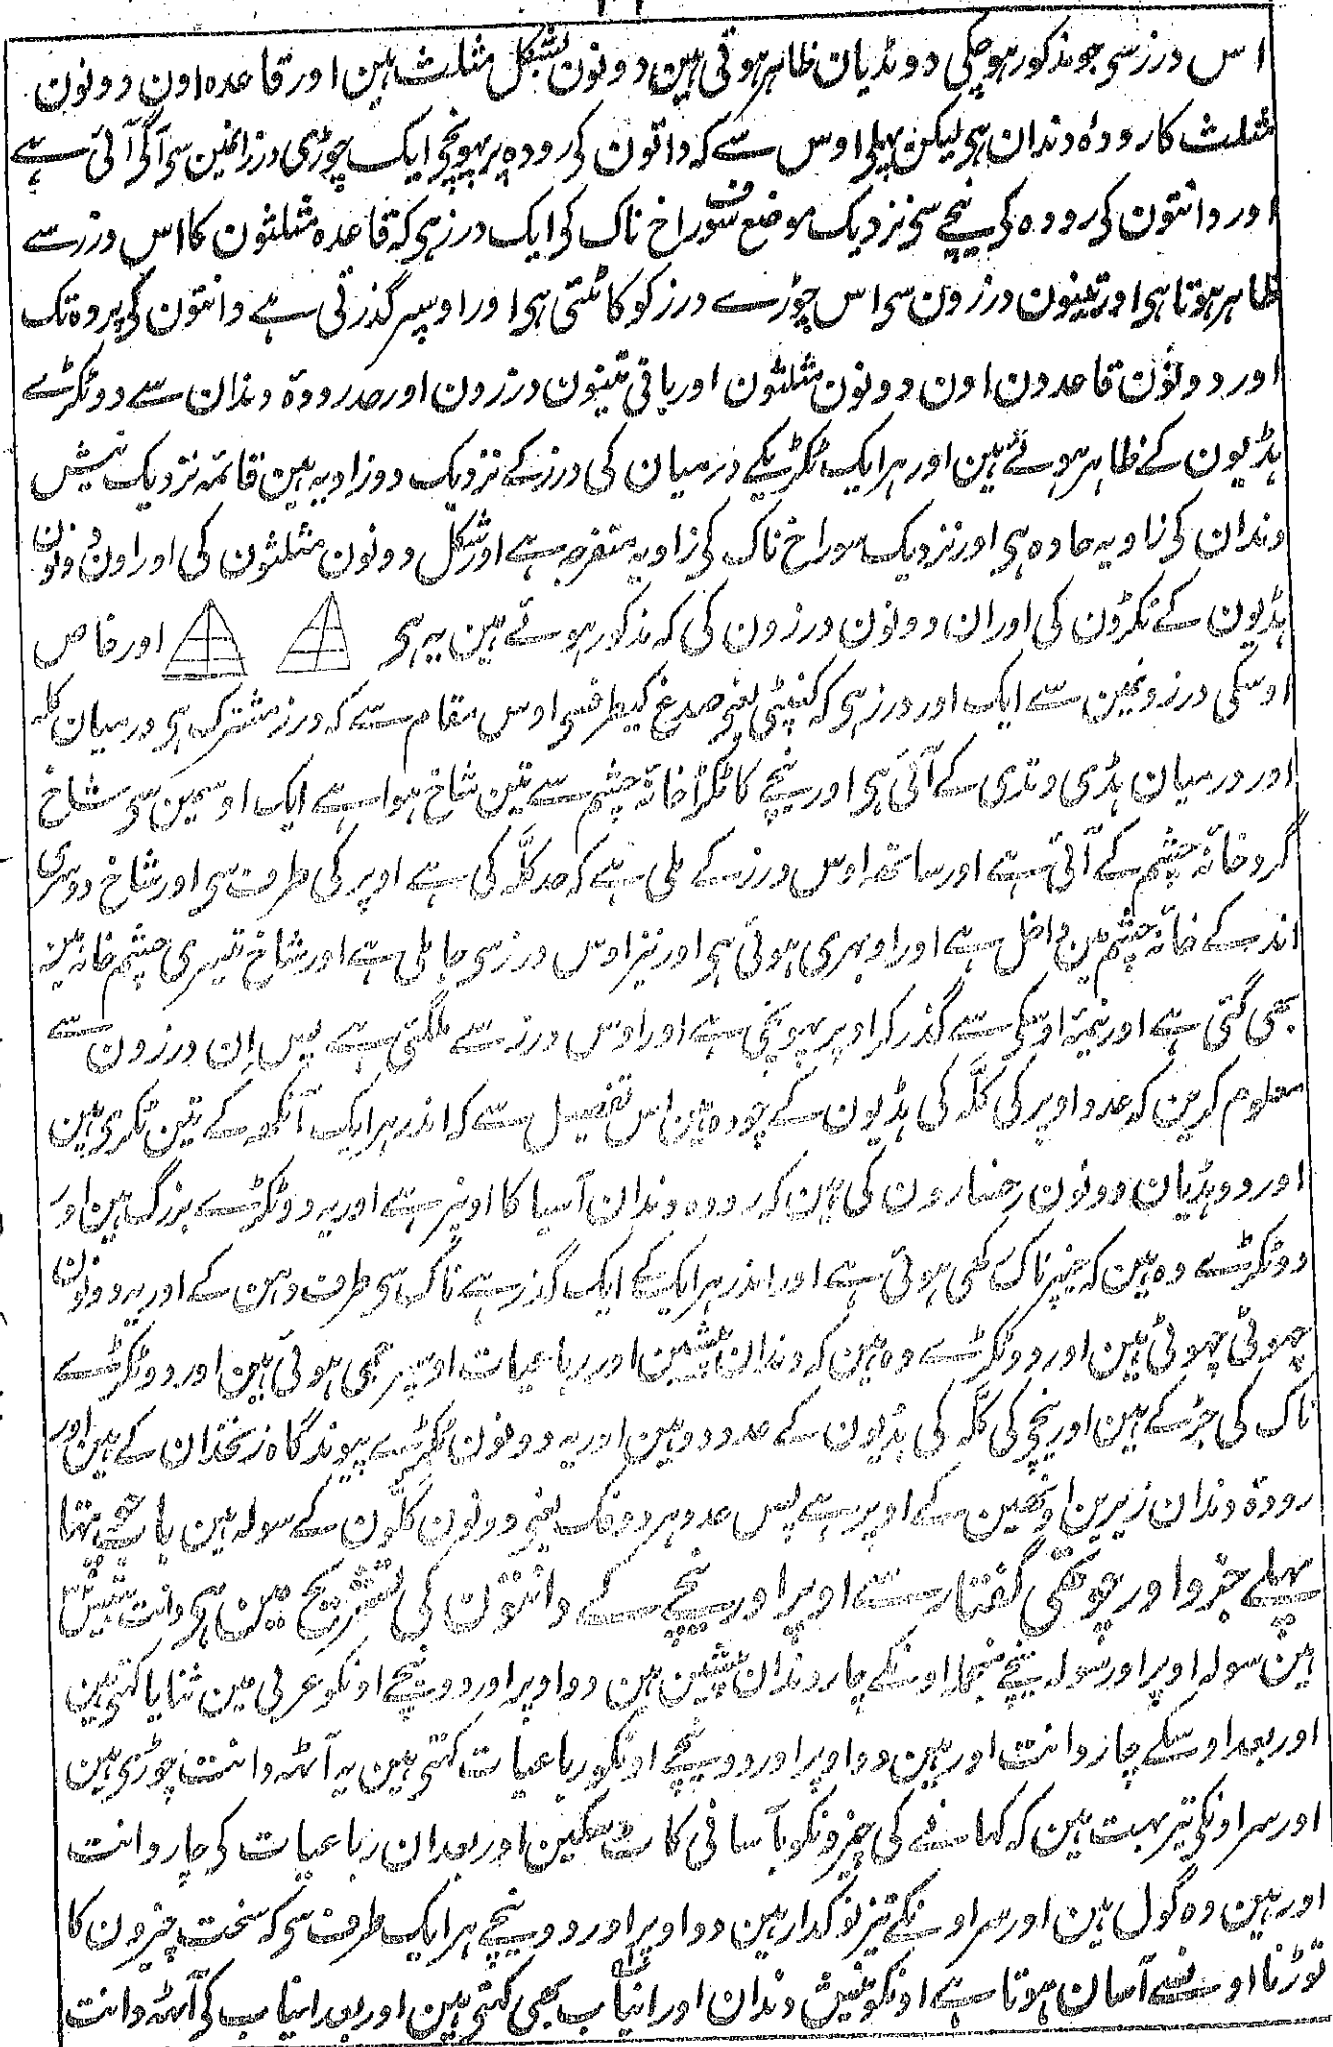 اس درزسی جو مذکور ہوچکی دو ہڈیان ظاہر ہوتی ہین دونون بشکل مثلث ہین اور قاعدہ اون دونون
مثلث کا رودۂ دندان ہی لیکن پہلی اوس سے کہ دانتون کی رودہ پر پہونچی ایک چوڑی درز انمین سی آگی آئی ہے
اور دانتون کی رودہ کی نیچے سی نزدیک موضع سوراخ ناک کی ایک درز ہی کہ قاعدہ مثلثون کا اس درز سے
ظاہر ہوتا ہی اور تینون درزون سی اس چوڑے درز کو کاٹتی ہی اور اوسپر گذرتی ہے دانتون کی پروہ تک
اور دونون قاعدون اون دونون مثلثون اور باقی تینون درزون اور حد رودۂ دندان سے دو ٹکڑے
ہڈیون کے ظاہر ہوئے ہین اور ہر ایک ٹکڑیکے درمیان کی درز کے نزدیک دو زاویہ ہین قائمہ نزدیک نیش
دندان کی زاویہ حادہ ہی اور نزدیک سوراخ ناک کی زاویہ منفرجہ ہے اور شکل دونون مثلثون کی اور اون دونون
ہڈیون کے ٹکڑون کی اور ان دونون درزون کی کہ مذکور ہوئے ہین یہ ہی اور خاص
اوسکی درزونمین سے ایک اور درز ہی کہ کنپٹی یعنی صدغ کیطرفسی اوس مقام سے کہ درز مشترک ہی درمیان کلہ
اور درمیان ہڈی وتدی کے آئی ہی اور نیچے کا ٹکڑا خانۂ چشم سے تین شاخ ہوا ہے ایک اوسمین سی شاخ
گرد خانۂ چشم کے آئی ہے اور ساتھہ اوس درز کے ملی ہے کہ حد کلّہ کی ہے اوپر کی طرف سی اور شاخ دوسری
اندر کے خانۂ چشم مین داخل ہے اور اوبھری ہوئی ہی اور نیز اوس درز سی جا ملی ہے اور شاخ تیسری چشم خانہ مین
بھی گئی ہے اور نیمۂ اوسکی سے گذر کر اوپر پہونچی ہے اور اوس درز سے ملگئی ہے پس اِن درزون سے
معلوم کرین کہ عدد اوپر کی کلّہ کی ہڈیون کے چودہ ہین اس تفصیل سے کہ اندر ہر ایک آنکھہ کے تین ٹکری ہین
اور دو ہڈیان دونون رخسارون کی ہین کہ رودہ دندان آسیا کا اوپر ہے اور یہ دو ٹکڑے بزرگ ہین اور
دو ٹکڑے وہ ہین کہ جنپر ناک رکھی ہوئی ہے اور اندر ہر ایک کے ایک گذر ہے ناک سی طرف دہن کے اور یہ دونون
چھوٹی چھوٹی ہین اور دو ٹکڑے وہ ہین کہ دندان پیشین اور رباعیات اوسپر جمی ہوئی ہین اور دو ٹکڑے
ناک کی جڑ کے ہین اور نیچی کی کلّہ کی ہڈیون کے عدد دو ہین اور یہ دونون ٹکڑے پیوندگاہ زنخدان کے ہین اور
رودۂ دندان زیرین اونھین کے اوپر ہے پس عدد ہر دو فک یعنی دونون کلّون کے سولہ ہین باب تنہا
پہلے جز و اور چوتھی گفتار سے اوپر اور نیچے کے دانتون کی تشریح مین ہی دانت بتیس
ہین سولہ اوپر اور سولہ نیچے منجملہ اونکے چار دندان پیشین ہین دو اوپر اور دو نیچے اونکو عربی مین ثنایا کہتی ہین
اور بعد اوسکے چار دانت اور ہین دو اوپر اور دو نیچے اونکو رباعیات کہتی ہین یہ آٹھہ دانت چوڑی ہین
اور سر اونکی تیز بہت ہین کہ کھانے کی چیزونکو بآسانی کاٹ سکین اور بعد ان رباعیات کی چار دانت
اور ہین وہ گول ہین اور سر اونکے تیز نوکدار ہین دو اوپر اور دو نیچے ہر ایک طرف سی کہ سخت چیزون کا
توڑنا اونسے آسان ہوتا ہے اونکو نیش دندان اور انیاب بھی کہتی ہین اور بعد انیاب کی آٹھہ دانت